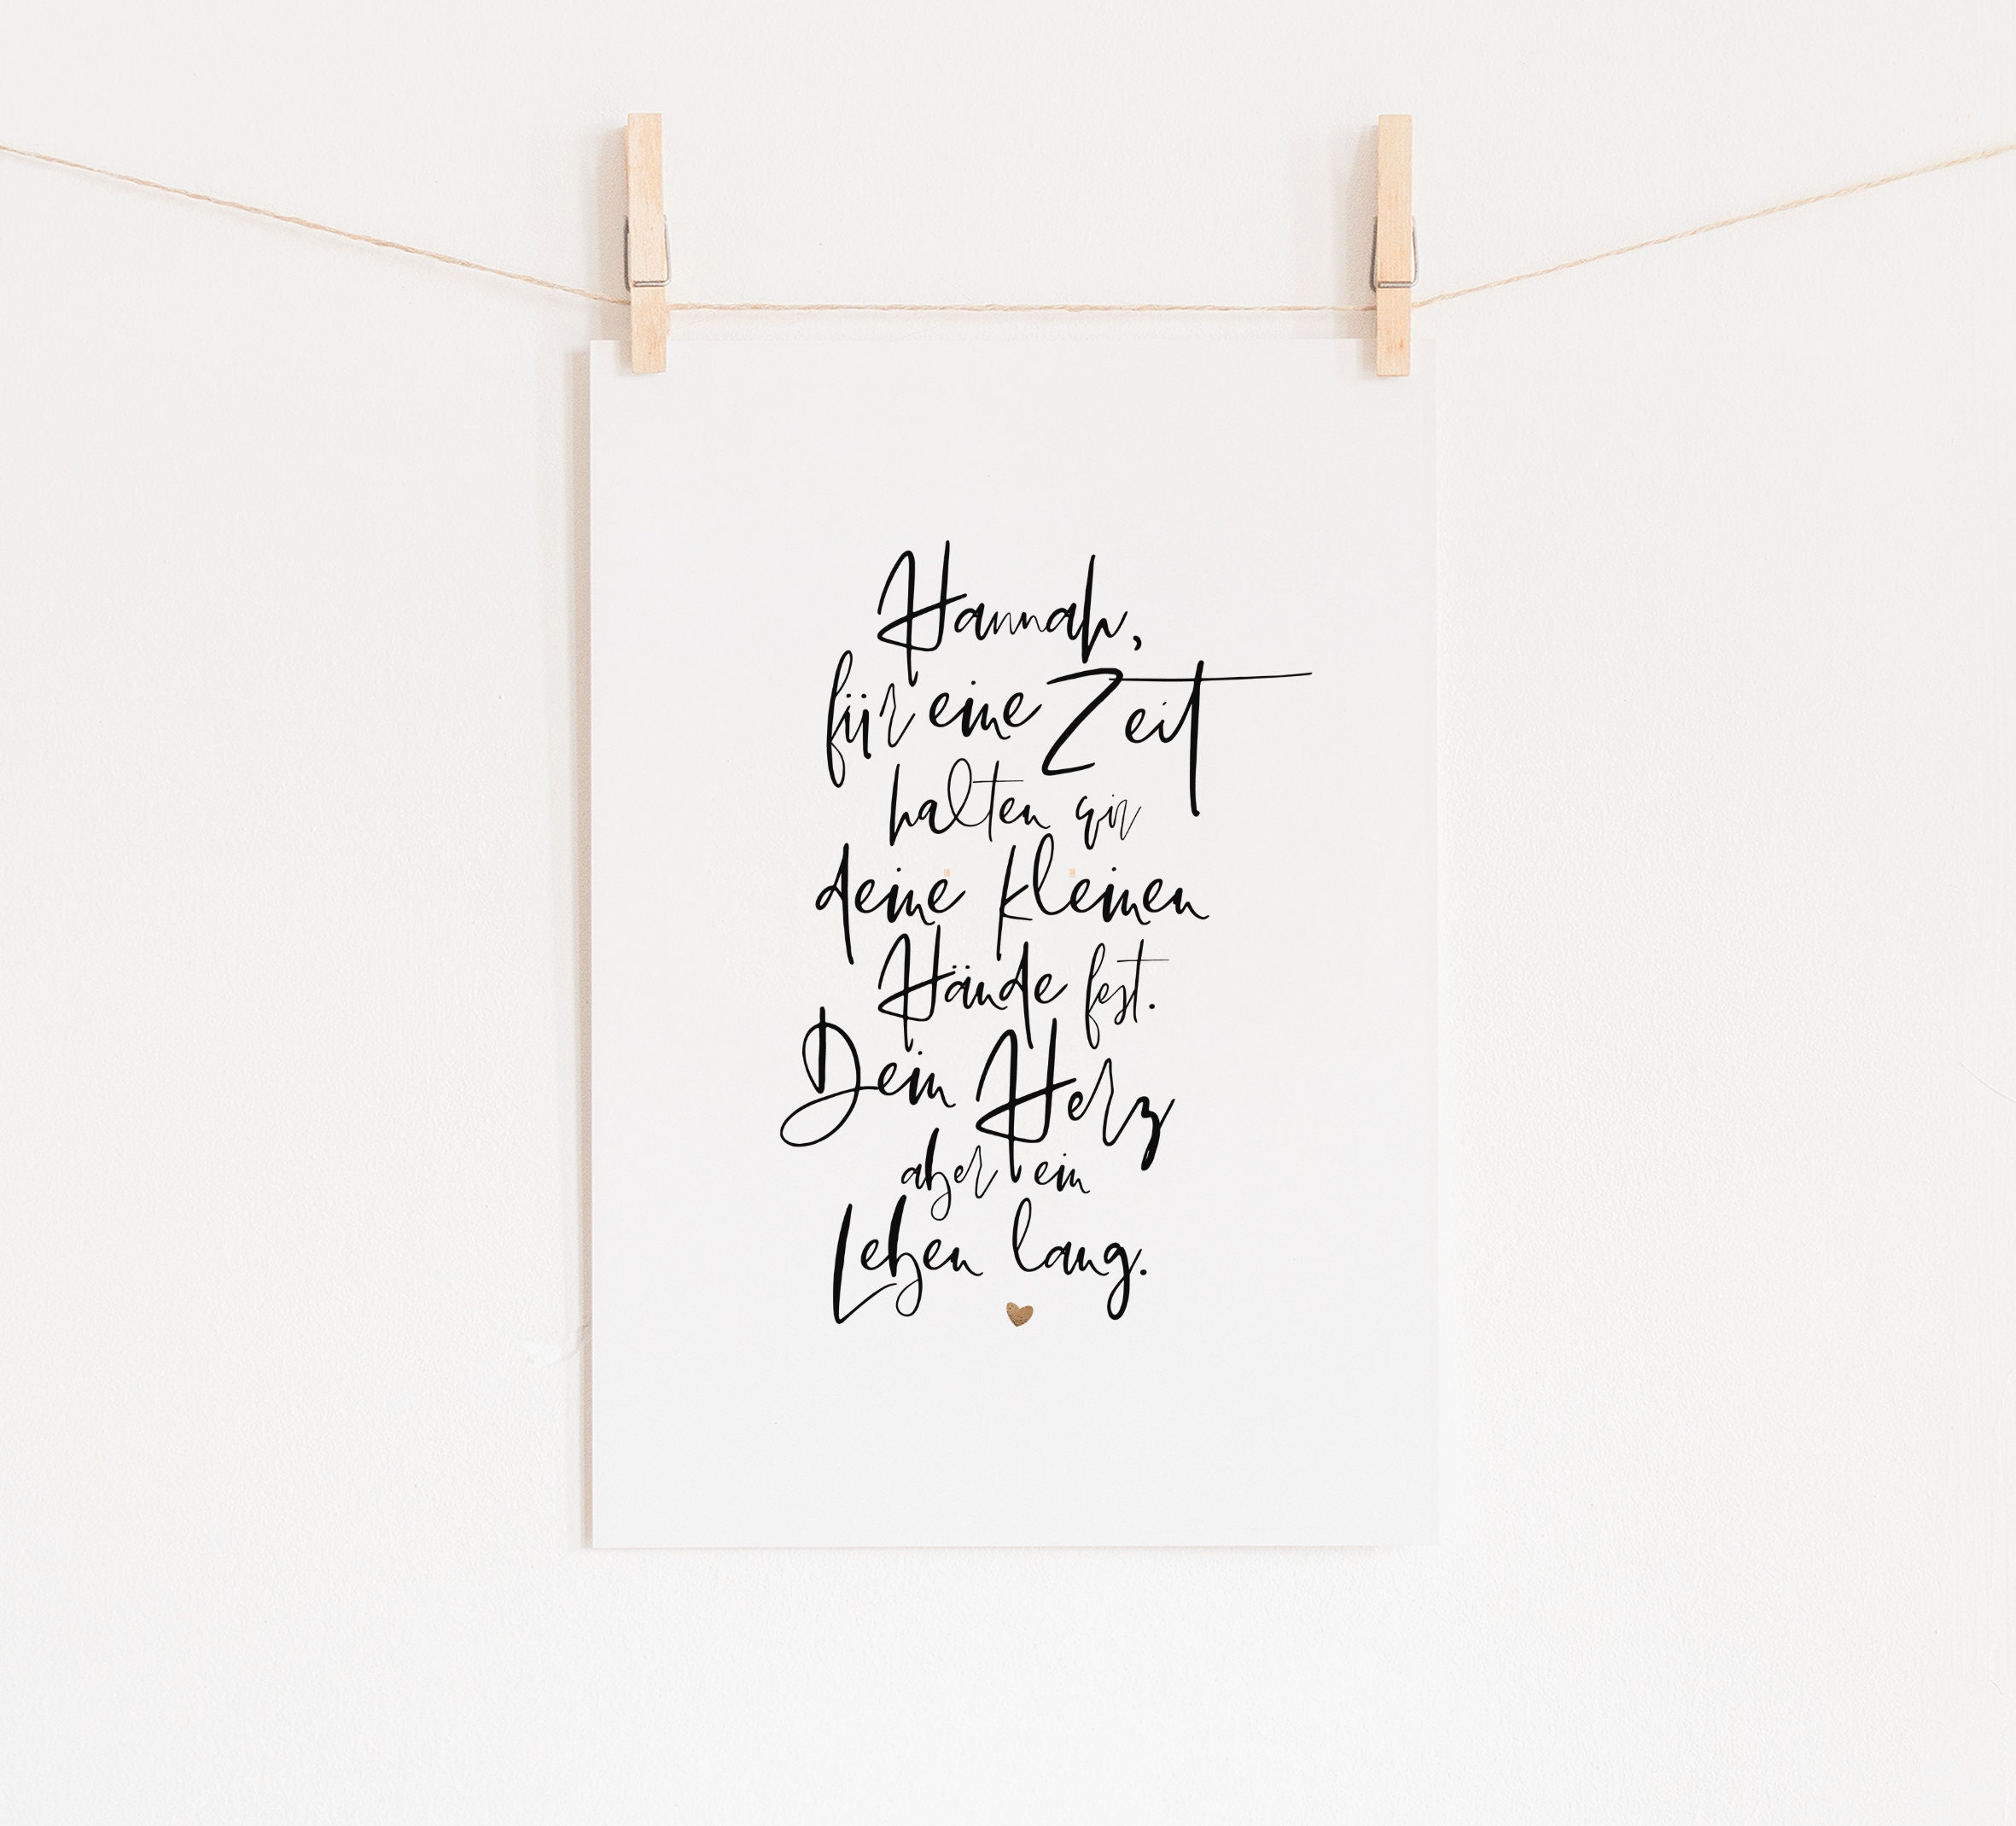 Hannah,
für eine Zeit
halten wir
deine kleinen
Hände fest.
Dein Herz
aber ein
Leben lang.